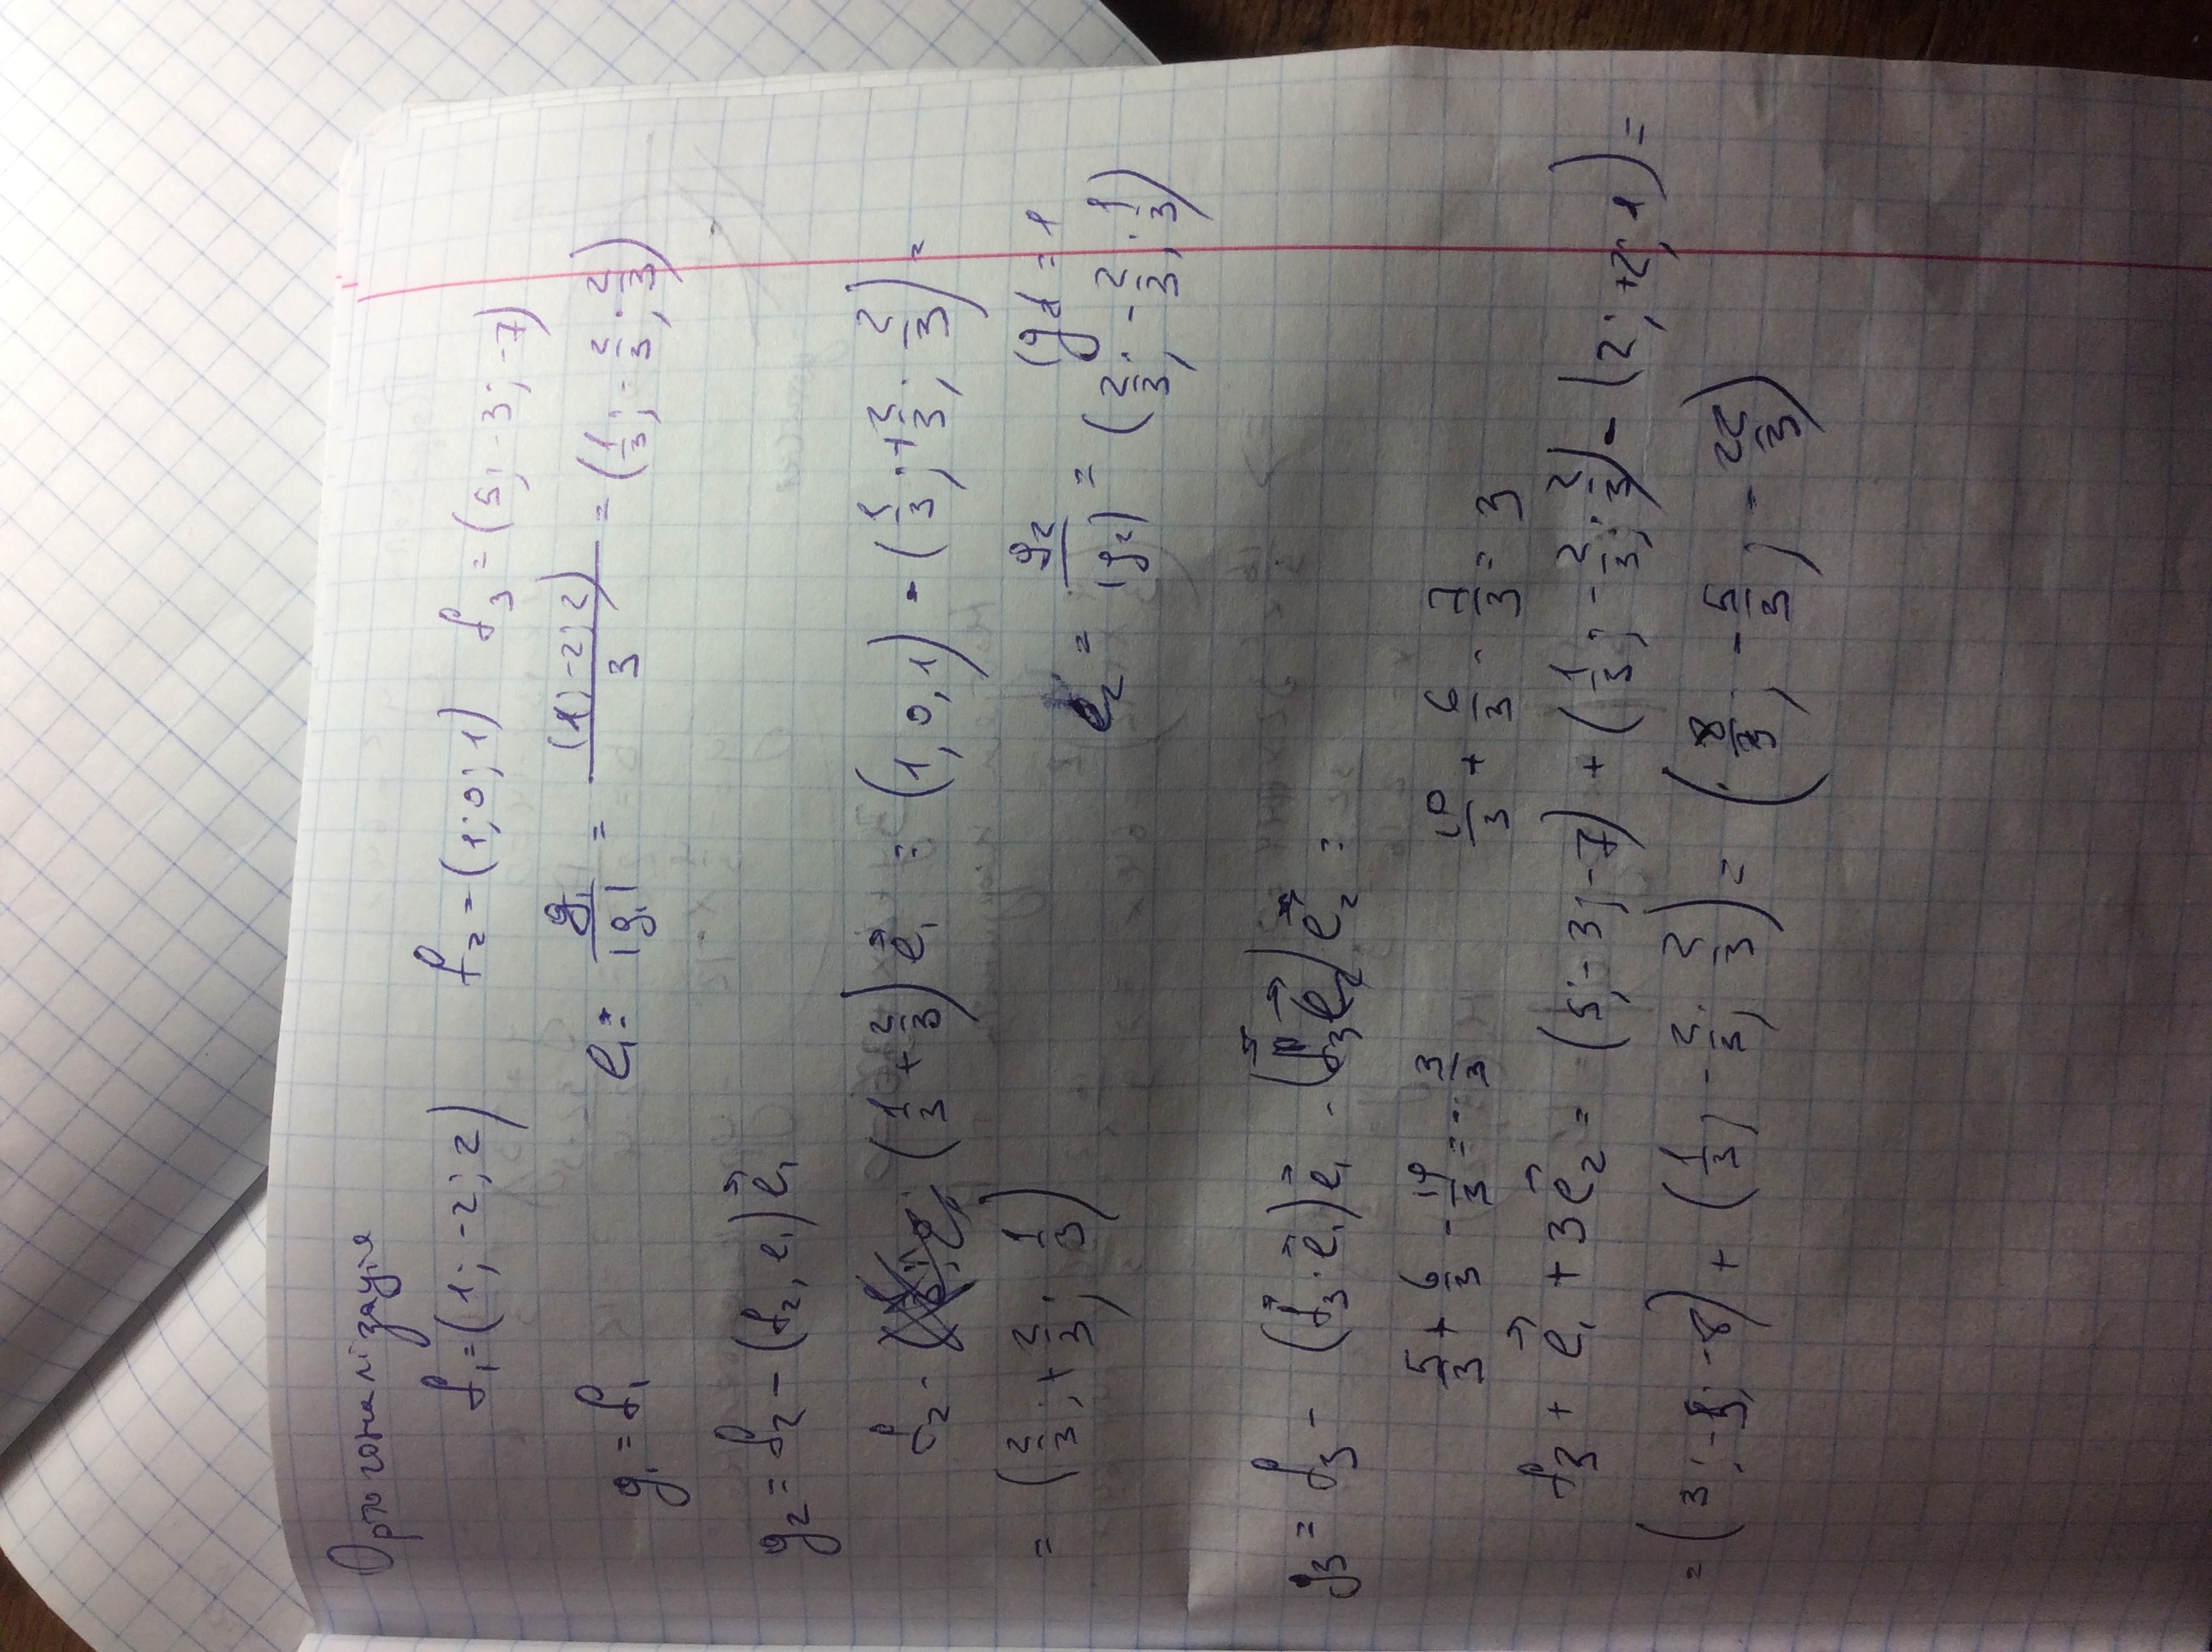 Ортогоналізація
f₁ = (1; -2; 2) f₂ = (1; 0; 1) f₃ = (5; -3; -7)
g₁ = f₁ e₁ = g₁/|g₁| = (1; -2; 2)/3 = (1/3; -2/3; 2/3)
g₂ = f₂ - (f₂, e₁) e⃗₁
f₂ - (1/3 + 2/3) e⃗₁ = (1, 0, 1) - (1/3; +2/3; 2/3) =
= (2/3; +2/3; 1/3) e₂ = g₂/|g₂| = |g₂| = 1
(2/3; -2/3; 1/3)
g₃ = f₃ - (f⃗₃ · e⃗₁) e⃗₁ - (f⃗₃ e⃗₂) e⃗₂ =
5/3 + 6/3 - 14/3 = -3/3 10/3 + 6/3 - 7/3 = 3
f₃ + e⃗₁ + 3e⃗₂ = (5; -3; -7) + (1/3; -2/3; 2/3) - (2; +2; 1) =
= (3; -5; -8) + (1/3; -2/3; 2/3) = (8/3; -5/3; -22/3)